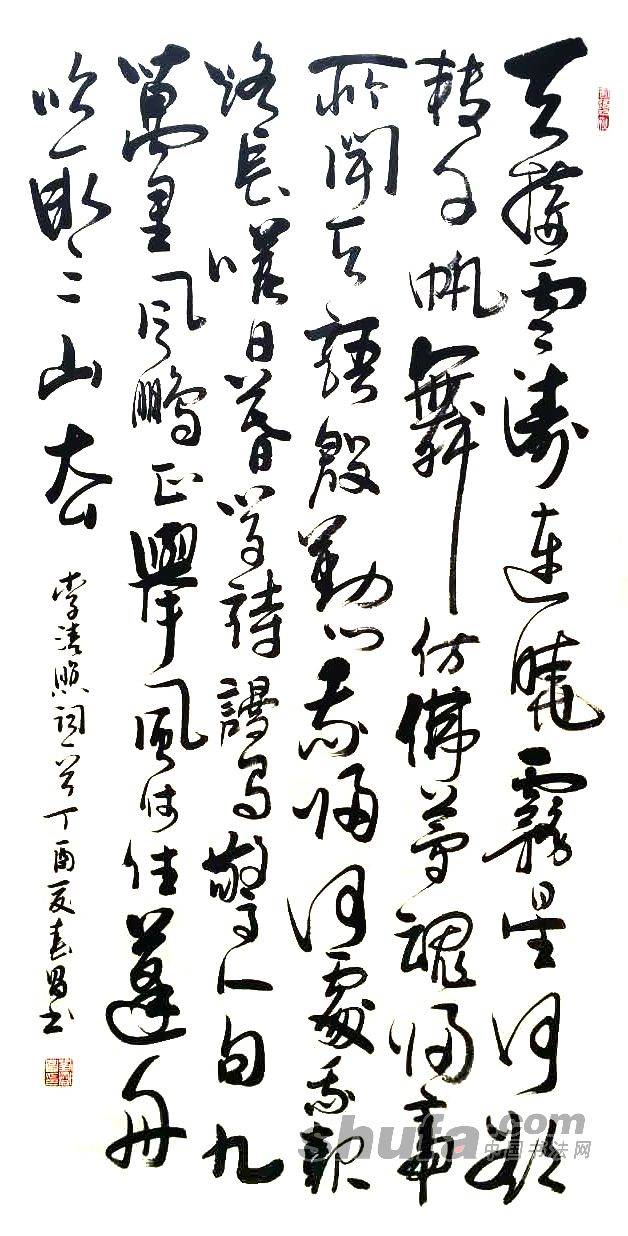 天接雲濤連曉霧星河欲
轉千帆舞仿佛夢魂歸帝
所聞天語殷勤問我歸何處我報
路長嗟日暮學詩謾有驚人句九
萬里風鵬正舉風休住蓬舟
吹取三山去
李清照詞一首丁酉夏昌书
shufa.com
中国书法网